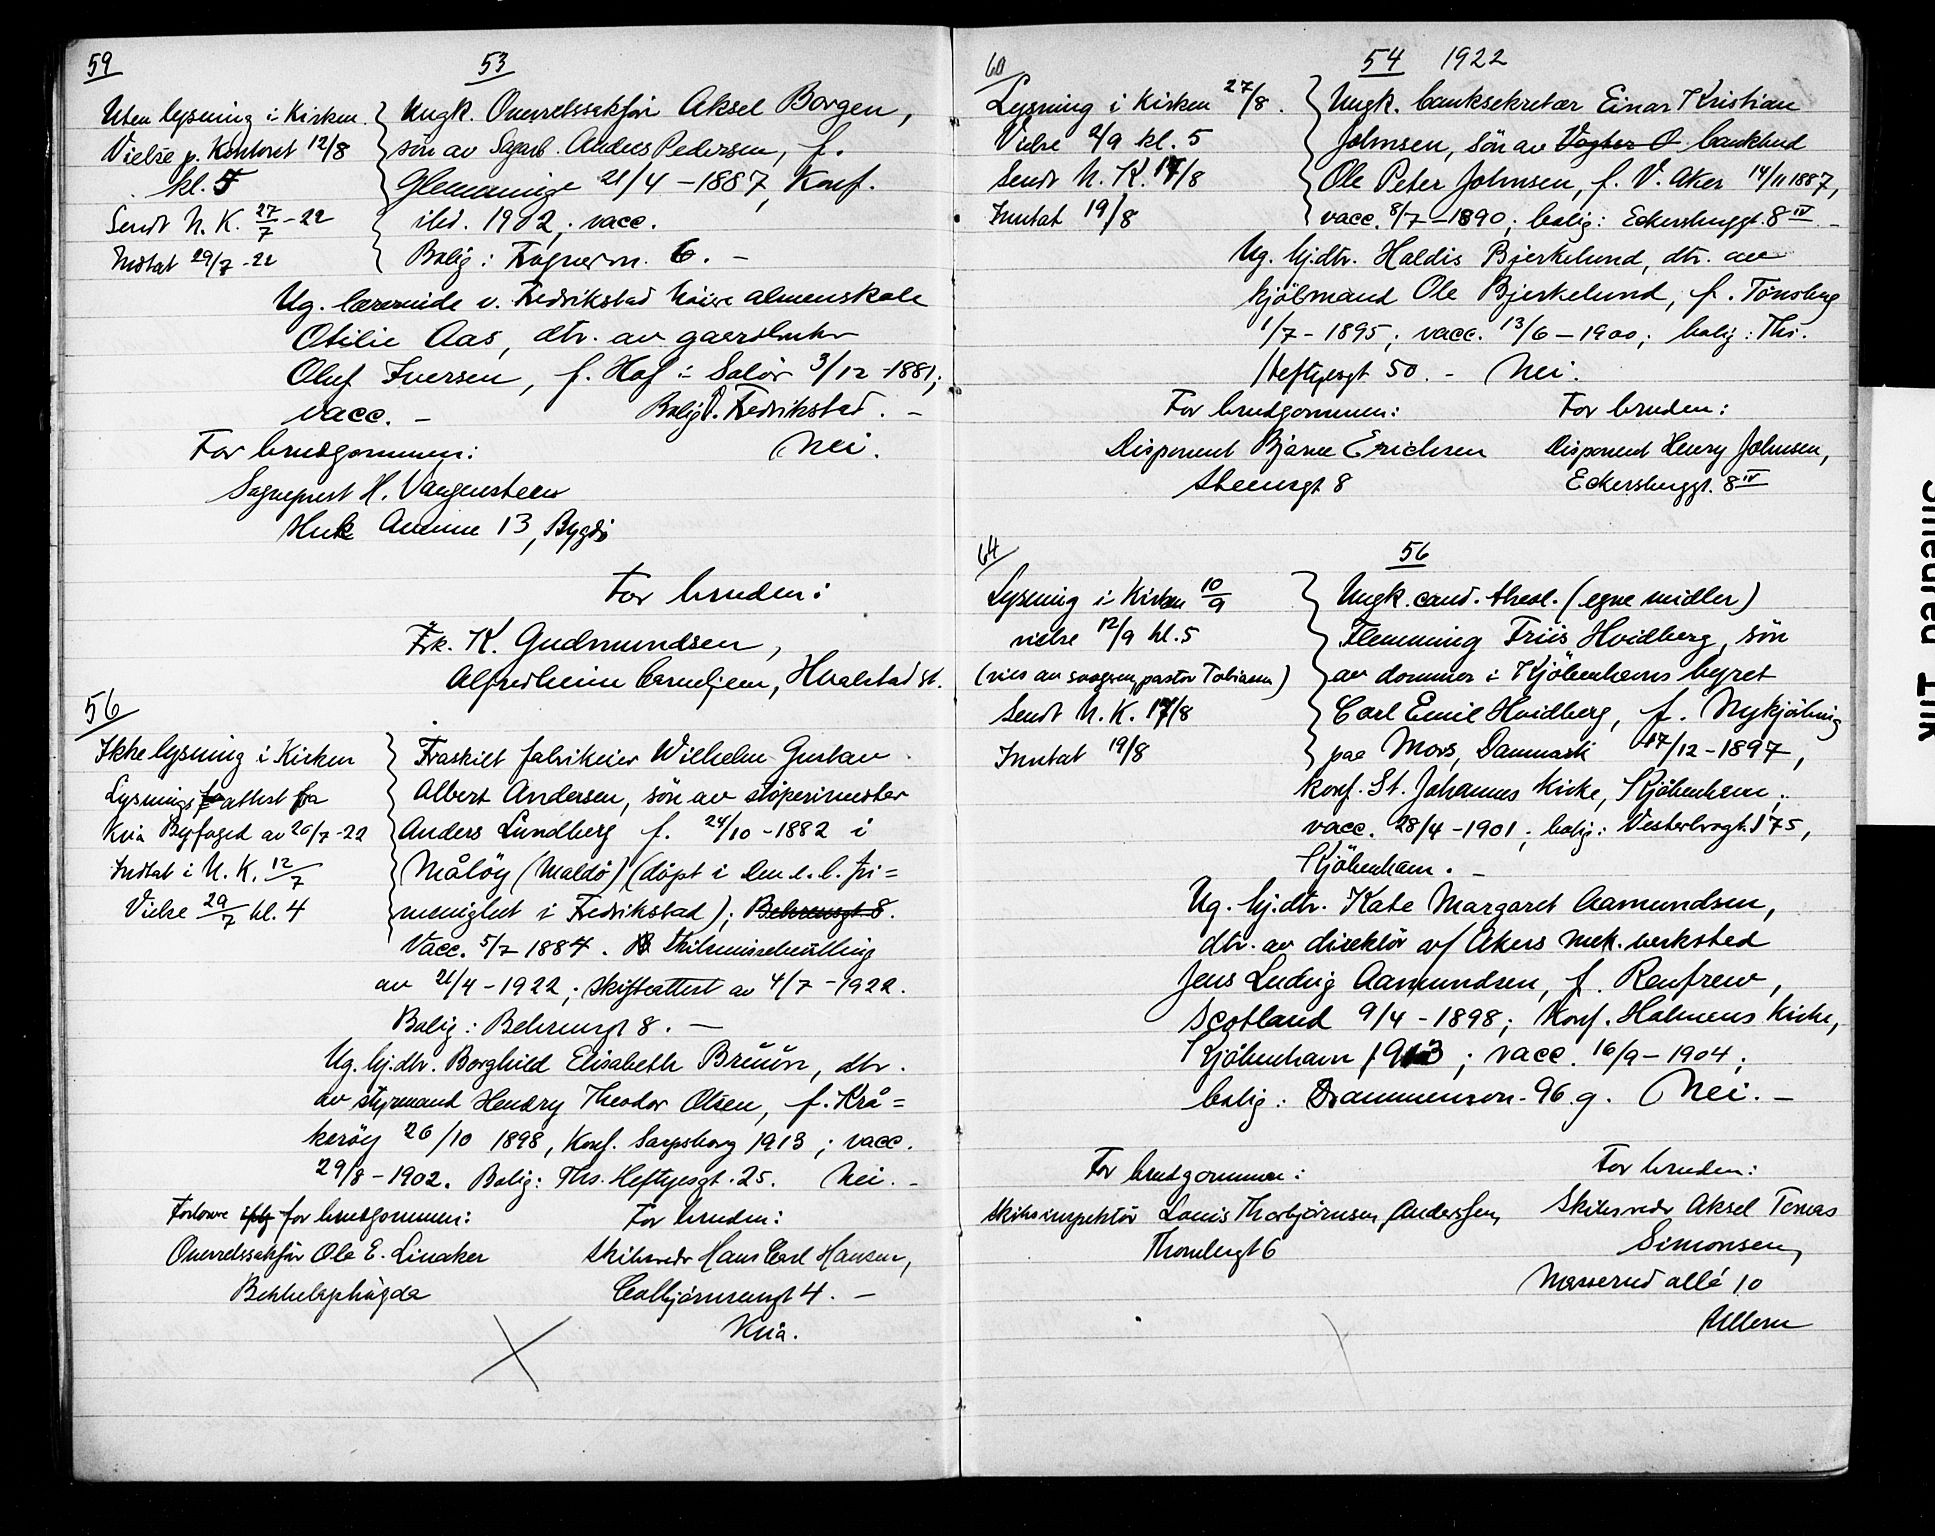 59
53
Uten lysning i Kirken
Vielse p. Kontoret 12/8
kl. 5
Sendt N. K. 27/7-22
Indtat 29/7-22
Ungk. Overretssakför Aksel Borgen,
sön av Sagarb. Anders Pedersen, f.
Glemminge 21/4-1887, Konf.
ibd. 1902, vacc.
Bolig: Frognervn. 6. -
Ug. lærerinde v. Fredrikstad höiere almenskole
Otilie Aas, dtr. av gaardbruker
Oluf Iversen, f. Hof i Solör 3/12-1881;
vacc. - Bolig: Fredrikstad. -
For brudgommen: Nei.
Sogneprest H. Vangensteen
Huk Avenue 13, Bygdö
For bruden:
Frk. K. Gudmundsen,
Alfredheim barnehjem, Hvalstad st.
56
Ikke lysning i Kirken
Lysningsattest fra
Kria Byfoged av 26/7-22
Indtat i N. K. 12/7
Vielse 29/7 kl. 4
Fraskilt fabrikeier Wilhelm Gustav
Albert Andersen, sön av stöperimester
Anders Lundberg f. 24/10-1882 i
Målöy (Maldö) (döpt i Den e. l. fri=
menighet i Fredrikstad); Behrensgt 8.
Vacc. 5/7 1884. Skilsmissebevilling
av 21/4-1922; skifteattest av 4/7-1922.
Bolig: Behrensgt 8. -
Ug. hj.dtr. Borghild Elisabeth Brüün, dtr.
av styrmand Hendry Theodor Olsen, f. Krå=
keröy 26/10 1898, Konf. Sarpsborg 1913; vacc.
29/8-1902. Bolig: Ths. Heftyesgt. 25. Nei. -
Forlovere for brudgommen: For bruden:
Overretssakför Ole E. Linaker
Bekkelagshögda
Skibsredr Hans Carl Hansen,
Colbjörnsensgt 4. -
Kria.
60
54 1922
Lysning i Kirken 27/8.
Vielse 2/9 kl. 5
Sendt N. K. 17/8
Inntat 19/8
Ungk. banksekretær Einar Kristian
Johnsen, sön av Vogter O bankbud
Ole Peter Johnsen, f. V. Aker 14/11 1887,
vacc. 8/7-1890; bolig: Eckersbuggt. 8 IV -
Ug. hj.dtr. Haldis Bjerkelund, dtr. av
kjölmand Ole Bjerkelund, f. Tönsberg
1/7-1895; vacc. 13/6-1900; bolig: Ths.
Heftyesgt 50. - Nei.
For brudgommen: For bruden:
Disponent Bjarne Erichsen
Stensgt 8
Disponent Henry Johnsen,
Eckersbuggt. 8 IV
64
56
Lysning i Kirken 10/9
vielse 12/9 kl. 5
(vies av svogeren, pastor Tobiassen)
Sendt N. K. 17/8
Inntat 19/8
Ungk. cand. theol. (egne midler)
Flemming Friis Hvidberg, sön
av dommer i Kjöbenhavns byret
Carl Emil Hvidberg, f. Nykjöbing
paa Mors, Danmark 17/12-1897,
konf. St. Johannes Kirke, Kjöbenhavn;
vacc. 28/4-1901; bolig: Vesterbrogt. 175,
Kjöbenhavn. -
Ug. hj.dtr. Kate Margaret Aamundsen,
dtr. av direktör v/ Akers mek. verksted
Jens Ludvig Aamundsen, f. Renfrew,
Scotland 9/4-1898; Konf. Holmens Kirke,
Kjöbenhavn 1913; vacc. 16/9-1904;
bolig: Drammensvn. 96 g. Nei. -
For brudgommen: For bruden:
Skibsinspektör Louis Thorbjörnsen Anderssen,
Thomlesgt 6
Skibsredr Aksel Tomas
Simonsen,
Masserud allé 10
Ullern